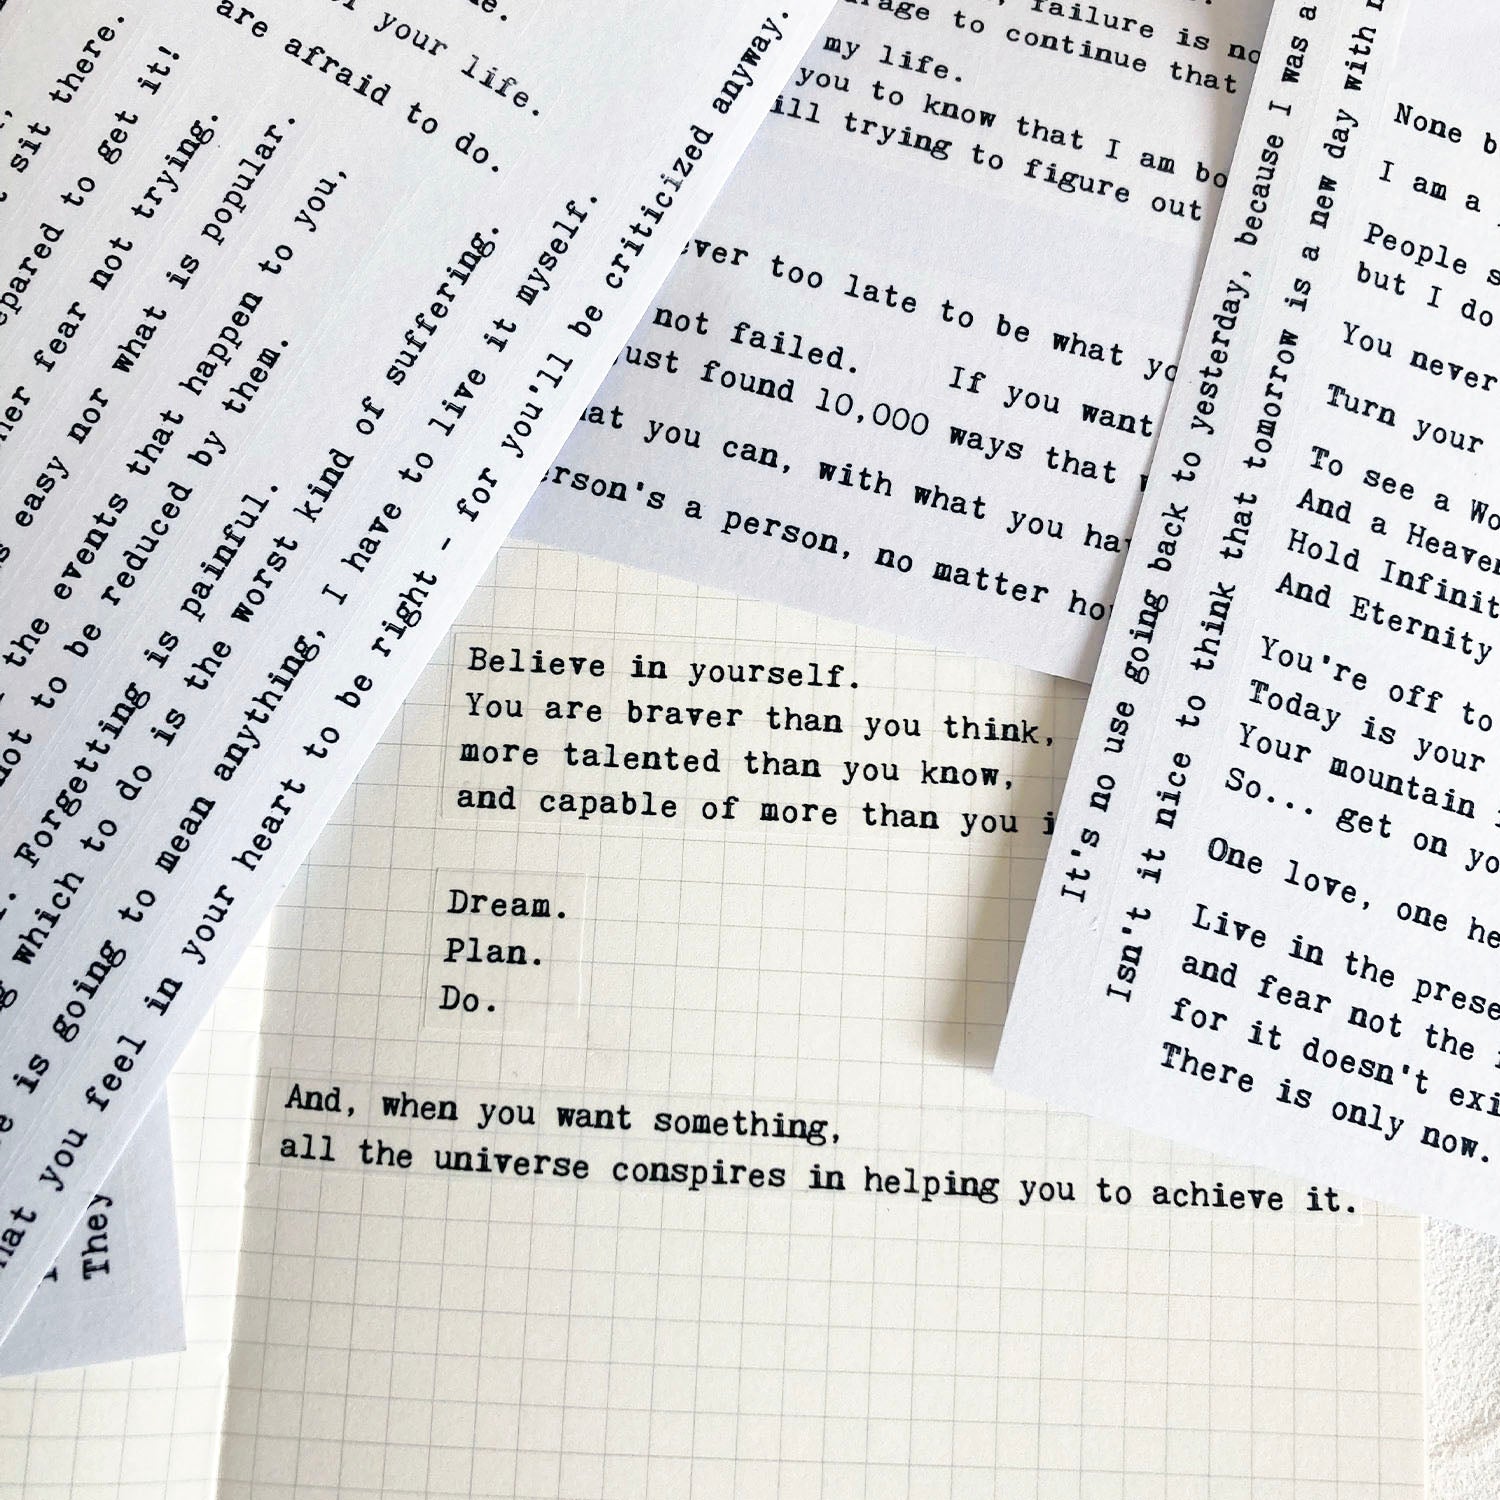 sit there.
to get it!
fear not trying.
easy nor what is popular.
the events that happen to you,
not to be reduced by them.
Forgetting is painful.
which to do is the worst kind of suffering.
is going to mean anything, I have to live it myself.
you feel in your heart to be right - for you'll be criticized anyway.
They
your life.
are afraid to do.
failure is
to continue that
my life.
you to know that I am
trying to figure out
too late to be what
not failed.
found 10,000 ways that
If you want
you can, with what you
a person, no matter
Believe in yourself.
You are braver than you think,
more talented than you know,
and capable of more than you
Dream.
Plan.
Do.
And, when you want something,
all the universe conspires in helping you to achieve it.
It's no use going back to yesterday, because I was a
Isn't it nice to think that tomorrow is a new day with
None
I am a
People
but I do
You never
Turn your
To see a
And a
Hold
And Eternity
You're off to
Today is your
Your mountain
So... get on
One love, one
Live in the
and fear not the
for it doesn't
There is only now.